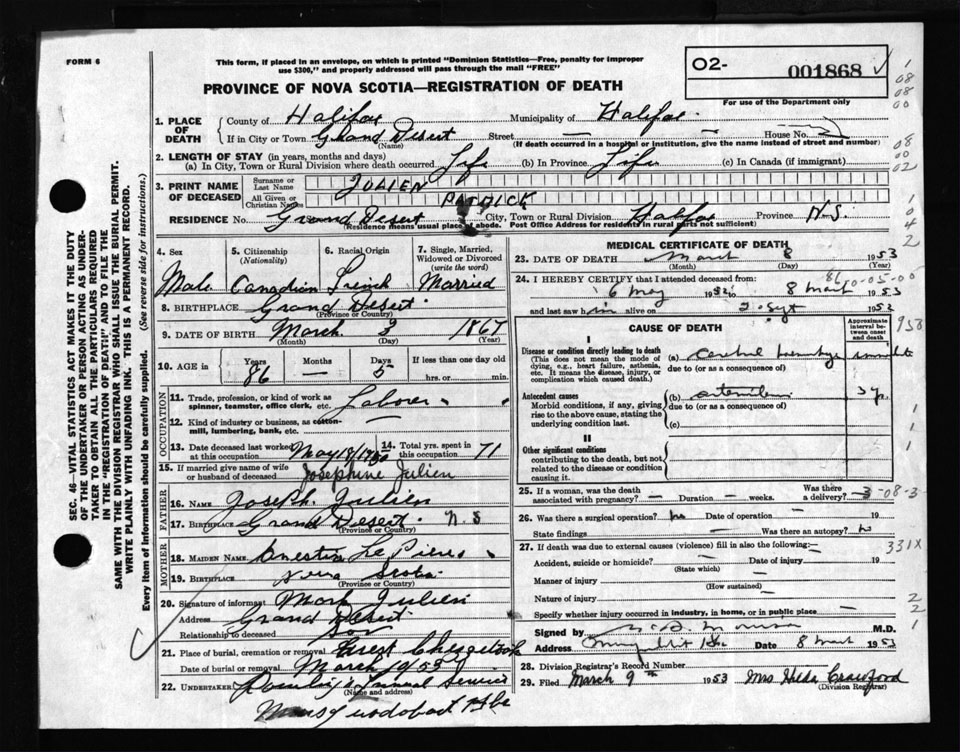 FORM 6
This form, if placed in an envelope, on which is printed "Dominion Statistics—Free, penalty for improper
use $300," and properly addressed will pass through the mail "FREE"
O2- 001868
For use of the Department only
PROVINCE OF NOVA SCOTIA—REGISTRATION OF DEATH
1. PLACE OF DEATH
County of Halifax Municipality of Halifax
If in City or Town Grand Desert Street — House No.
(Name) (If death occurred in a hospital or institution, give the name instead of street and number)
2. LENGTH OF STAY (in years, months and days)
(a) In City, Town or Rural Division where death occurred Life (b) In Province Life (c) In Canada (if immigrant)
3. PRINT NAME OF DECEASED
Surname or Last Name JULIEN
All Given or Christian Names PATRICK
RESIDENCE No. Grand Desert City, Town or Rural Division Halifax Province N.S.
(Residence means usual place of abode. Post Office Address for residents in rural parts not sufficient)
4. Sex Male
5. Citizenship (Nationality) Canadian
6. Racial Origin French
7. Single, Married, Widowed or Divorced (write the word) Married
8. BIRTHPLACE Grand Desert
(Province or Country)
9. DATE OF BIRTH March 3 1867
(Month) (Day) (Year)
10. AGE in Years 86 Months — Days 5 If less than one day old
hrs. or min.
OCCUPATION
11. Trade, profession, or kind of work as spinner, teamster, office clerk, etc. Laborer
12. Kind of industry or business, as cotton-mill, lumbering, bank, etc.
13. Date deceased last worked at this occupation May 18/19
14. Total yrs. spent in this occupation 71
15. If married give name of wife or husband of deceased Josephine Julien
FATHER
16. NAME Joseph Julien
17. BIRTHPLACE Grand Desert N.S
(Province or Country)
MOTHER
18. MAIDEN NAME
19. BIRTHPLACE Nova Scotia
(Province or Country)
20. Signature of informant Mark Julien
Address Grand Desert
Relationship to deceased Son
21. Place of burial, cremation or removal West Chezzetcook
Date of burial or removal March 10/53
22. UNDERTAKER Funeral Service
(Name and address)
MEDICAL CERTIFICATE OF DEATH
23. DATE OF DEATH March 8 1953
(Month) (Day) (Year)
24. I HEREBY CERTIFY that I attended deceased from:
6 May 1952 to 8 March 1953
and last saw him alive on 2 Sept 1952
CAUSE OF DEATH
Approximate interval between onset and death
I
Disease or condition directly leading to death
(This does not mean the mode of dying, e.g., heart failure, asthenia, etc. It means the disease, injury, or complication which caused death.)
(a) cerebral hemorrhage
due to (or as a consequence of)
Antecedent causes
Morbid conditions, if any, giving rise to the above cause, stating the underlying condition last.
(b) 3 yr.
due to (or as a consequence of)
(c)
II
Other significant conditions
contributing to the death, but not related to the disease or condition causing it.
25. If a woman, was the death associated with pregnancy? — Duration — weeks. Was there a delivery? —
3-08-3
26. Was there a surgical operation? no Date of operation — 19
State findings — Was there an autopsy? no
27. If death was due to external causes (violence) fill in also the following:—
331X
Accident, suicide or homicide? — Date of injury — 19
(State which)
Manner of injury —
(How sustained)
Nature of injury —
Specify whether injury occurred in industry, in home, or in public place —
Signed by M.D.
Address Date 8 March 1953
28. Division Registrar's Record Number
29. Filed March 9th 1953 Mrs Hilda Crawford
(Division Registrar)
SEC. 46—VITAL STATISTICS ACT MAKES IT THE DUTY
OF THE UNDERTAKER OR PERSON ACTING AS UNDER-
TAKER TO OBTAIN ALL THE PARTICULARS REQUIRED
IN THE "REGISTRATION OF DEATH" AND TO FILE THE
SAME WITH THE DIVISION REGISTRAR WHO SHALL ISSUE THE BURIAL PERMIT.
WRITE PLAINLY WITH UNFADING INK. THIS IS A PERMANENT RECORD.
Every item of information should be carefully supplied. (See reverse side for instructions.)